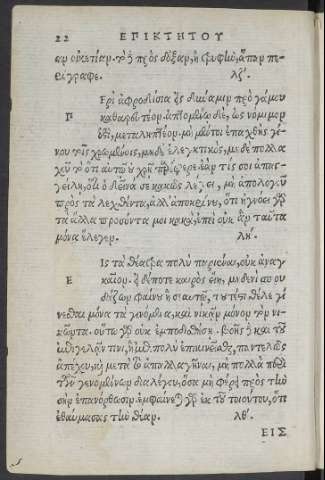 22 ΕΠΙΚΤΗΤΟΥ
αν οἰκετίαν. τὸ δὲ πρὸς δόξαν, ἢ τρυφὴν, ἅπαν πε-
ρίγραφε. λζ´.
Περὶ ἀφροδίσια εἰς δύναμιν πρὸ γάμου
καθαρευτέον. ἁπτομένῳ δὲ, ὡς νόμιμον
ἐστι, μεταληπτέον. μὴ μέντοι ἐπαχθὴς γί-
νου τοῖς χρωμένοις, μηδὲ ἐλεγκτικός, μηδὲ πολλα-
χοῦ τὸ ὅτι αὐτὸς οὐ χρῇ παράφερε. ἐάν τίς σοι ἀπαγ-
γείλῃ, ὅτι ὁ δεῖνα σε κακῶς λέγει, μὴ ἀπολογοῦ
πρὸς τὰ λεχθέντα, ἀλλ' ἀποκρίνου, ὅτι ἠγνόει γὰρ
τὰ ἄλλα προσόντα μοι κακὰ, ἐπεὶ οὐκ ἂν ταῦτα
μόνα ἔλεγεν. λη´.
Εἰς τὰ θέατρα πολὺ παριέναι, οὐκ ἀναγ-
καῖον. εἰ δέ ποτε καιρὸς εἴη, μηδενὶ σπου
δάζων φαίνου ἢ σεαυτῷ, τουτέστι θέλε γί
νεσθαι μόνα τὰ γινόμενα, καὶ νικᾶν μόνον τὸν νι-
κῶντα. οὕτω γὰρ οὐκ ἐμποδισθήσῃ. βοῆς δὲ καὶ τοῦ
ἐπιγελᾶν τινι, ἢ ἐπὶ πολὺ ἐπικινεῖσθαι, παντελῶς
ἀπέχου. καὶ μετὰ τὸ ἀπαλλαγῆναι, μὴ πολλὰ περὶ
τῶν γενομένων διαλέγου, ὅσα μὴ φέρει πρὸς τὴν
σὴν ἐπανόρθωσιν. ἐμφαίνεται γὰρ ἐκ τοῦ τοιούτου, ὅτι
ἐθαύμασας τὴν θέαν. λθ´.
ΕΙΣ